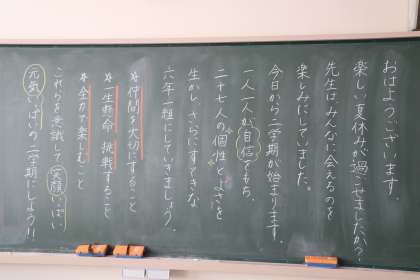 おはようございます。
楽しい夏休みが過ごせましたか?
先生はみんなに会えるのを
楽しみにしていました。
今日から二学期が始まります。
一人一人が自信をもち、
二十七人の個性とよさを
生かし、さらにすてきな
六年一組にしていきましょう。
*仲間を大切にすること
*一生懸命 挑戦すること
*全力で楽しむこと
これらを意識して笑顔いっぱい
元気いっぱいの二学期にしよう!!